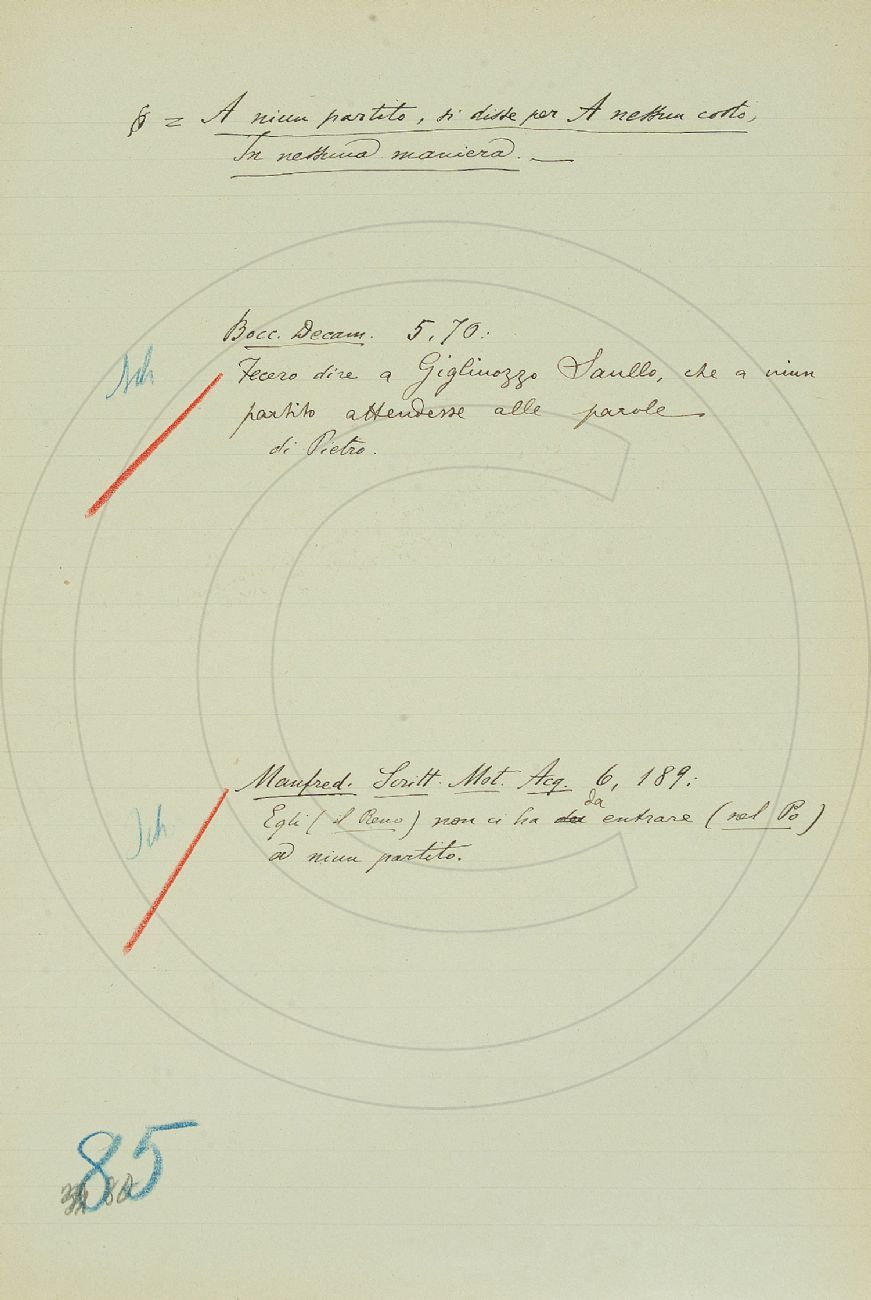 § = A niun partito, si disse per A nessun costo,
In nessuna maniera. —
Bocc. Decam. 5, 70:
Fecero dire a Gigliuozzo Saullo, che a niun
partito attendesse alle parole
di Pietro.
Manfred. Scritt. Mot. Acq. 6, 189:
Egli (il Reno) non ci ha da entrare (nel Po)
a niun partito.
85